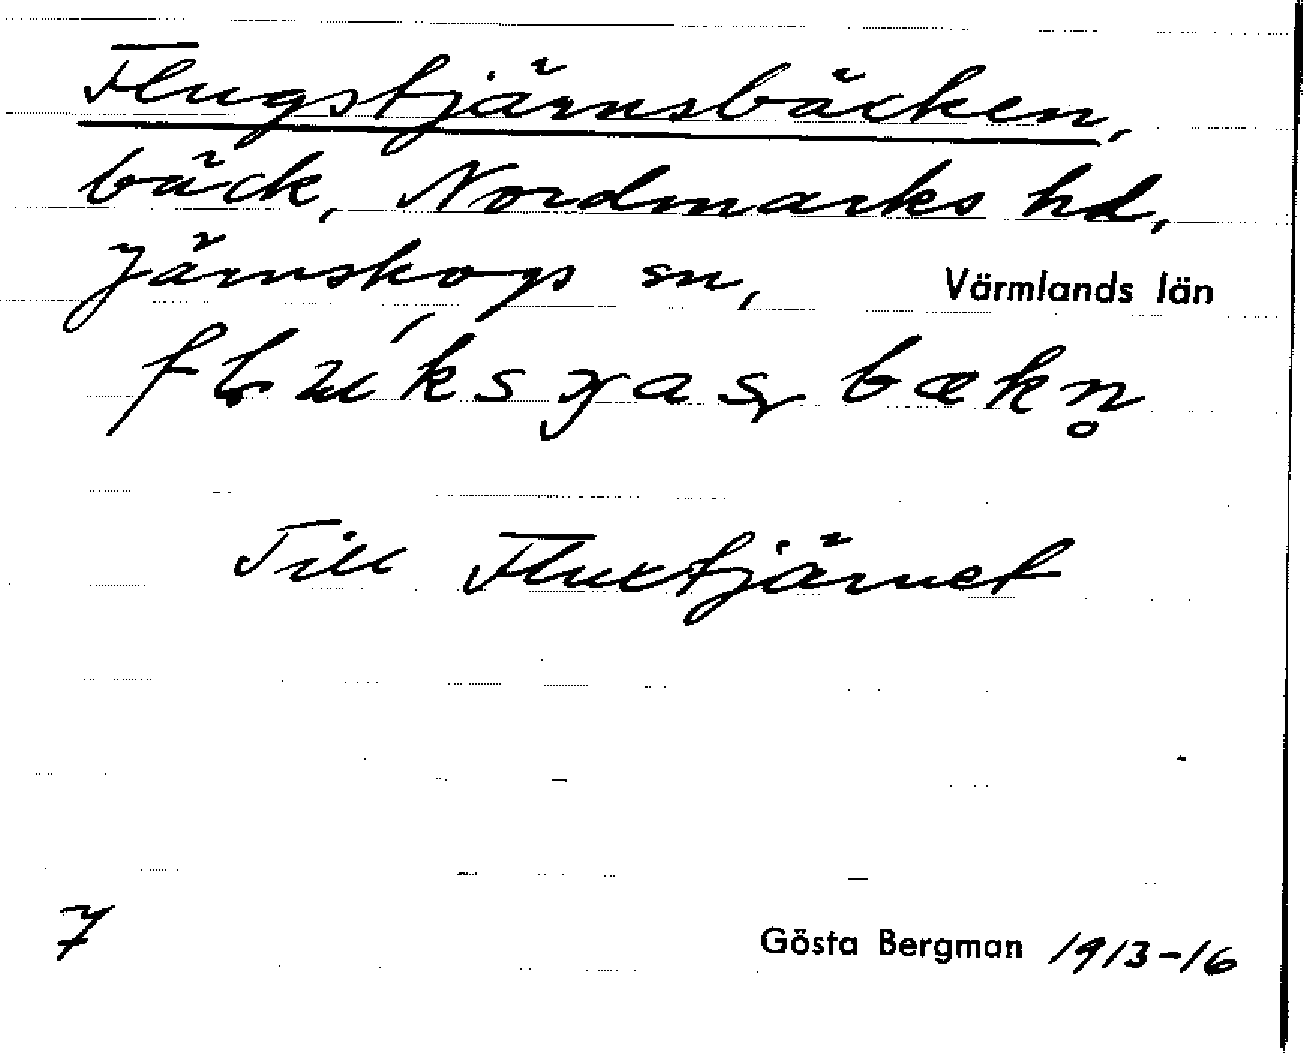 Flugstjärnsbäcken,
bäck, Nordmarks hd,
Järnskogs sn, Värmlands län
Till Fluxtjärnet
7 Gösta Bergman 1913-16